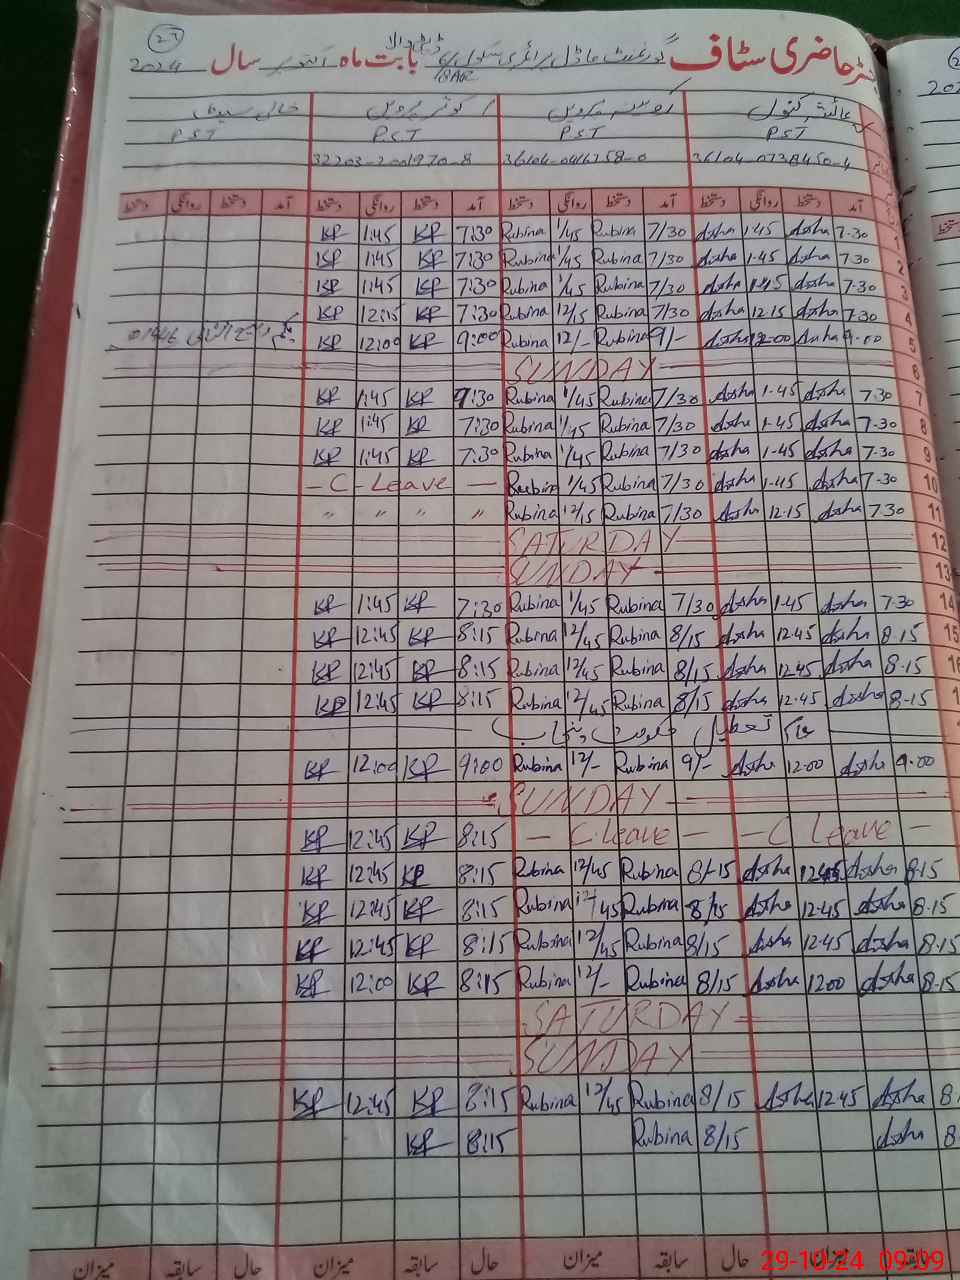 23
رجسٹر حاضری سٹاف گورنمنٹ ماڈل پرائمری سکول بابت ماہ اکتوبر سال 2024
عائشہ کنول روبینہ پروین کوثر پروین خالی سیٹ
PST PST PST PST
36104-0738450-4 36104-0416258-0 32203-2001970-8
آمد دستخط روانگی دستخط آمد دستخط روانگی دستخط آمد دستخط روانگی دستخط آمد دستخط روانگی دستخط
1 7-30 Assha 1-45 Assha 7/30 Rubina 1/45 Rubina 7:30 KP 1:45 KP
2 7-30 Assha 1-45 Assha 7/30 Rubina 1/45 Rubina 7:30 KP 1:45 KP
3 7-30 Assha 1-45 Assha 7/30 Rubina 1/45 Rubina 7:30 KP 1:45 KP
4 7-30 Assha 12-15 Assha 7/30 Rubina 12/15 Rubina 7:30 KP 12:15 KP
5 9-00 Assha 12-00 Assha 9/- Rubina 12/- Rubina 9:00 KP 12:00 KP
6 SUNDAY
7 7-30 Assha 1-45 Assha 7/30 Rubina 1/45 Rubina 7:30 KP 1:45 KP
8 7-30 Assha 1-45 Assha 7/30 Rubina 1/45 Rubina 7:30 KP 1:45 KP
9 7-30 Assha 1-45 Assha 7/30 Rubina 1/45 Rubina 7:30 KP 1:45 KP
10 7-30 Assha 1-45 Assha 7/30 Rubina 1/45 Rubina - C - Leave -
11 7-30 Assha 12-15 Assha 7/30 Rubina 12/15 Rubina " " " "
12 SATURDAY
13 SUNDAY
14 7-30 Assha 1-45 Assha 7/30 Rubina 1/45 Rubina 7:30 KP 1:45 KP
15 8-15 Assha 12-45 Assha 8/15 Rubina 12/45 Rubina 8:15 KP 12:45 KP
16 8-15 Assha 12-45 Assha 8/15 Rubina 12/45 Rubina 8:15 KP 12:45 KP
8-15 Assha 12-45 Assha 8/15 Rubina 12/45 Rubina 8:15 KP 12:45 KP
عام تعطیل حکومت پنجاب
9-00 Assha 12-00 Assha 9/- Rubina 12/- Rubina 9:00 KP 12:00 KP
SUNDAY
- C Leave - - C.Leave - 8:15 KP 12:45 KP
8-15 Assha 12-45 Assha 8/15 Rubina 12/45 Rubina 8:15 KP 12:45 KP
8-15 Assha 12-45 Assha 8/15 Rubina 12/45 Rubina 8:15 KP 12:45 KP
8-15 Assha 12-45 Assha 8/15 Rubina 12/45 Rubina 8:15 KP 12:45 KP
8-15 Assha 12-00 Assha 8/15 Rubina 12/- Rubina 8:15 KP 12:00 KP
SATURDAY
SUNDAY
Assha 12-45 Assha 8/15 Rubina 12/45 Rubina 8:15 KP 12:45 KP
Assha 8/15 Rubina 8:15 KP
سابقہ میزان حال سابقہ میزان حال سابقہ میزان حال سابقہ میزان
29-10-24 09:09